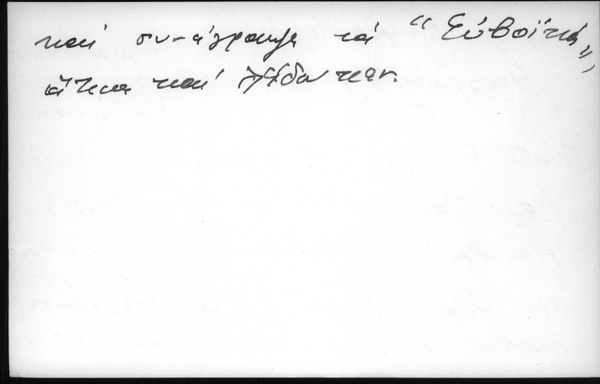 καί συνέγραψε τά "Εὐβοϊκά",
ἅτινα καί ἐξέδωκεν.